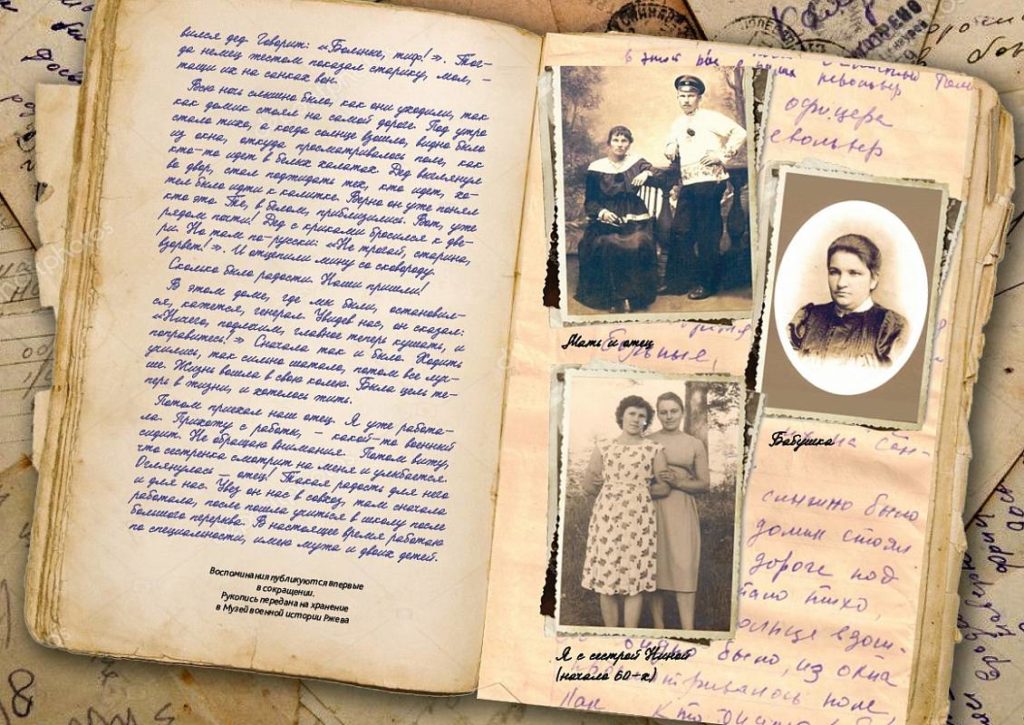 вился дед. Говорит: «Болинке, тиф!». Тог-
да немец жестом показал старику, мол, –
тащи их на санках вон.
Всю ночь слышно было, как они уходили, так
как домик стоял на самой дороге. Под утро
стало тихо, а когда солнце взошло, видно было
из окна, откуда просматривалось поле, как
кто-то идет в белых халатах. Дед выглянул
во двор, стал поджидать тех, кто идет, хо-
тел было идти к калитке. Верно он уже понял
кто это. Те, в белом, приблизились. Вот, уже
рядом почти! Дед с криками бросился к две-
ри. Но там по-русски: «Не трогай, старина,
взорвет!». И отцепили мину со сковороду.
Сколько было радости. Наши пришли!
В этом доме, где мы были, остановил-
ся, кажется, генерал. Увидев нас, он сказал:
«Ничего, подлечим, главное теперь кушать, и
поправитесь!» Сначала так и было. Ходить
учились, так сильно шатало, потом все луч-
ше. Жизнь вошла в свою колею. Была цель те-
перь в жизни, и хотелось жить.
Потом приехал наш отец. Я уже работа-
ла. Прихожу с работы, – какой-то военный
сидит. Не обращаю внимания. Потом вижу,
что сестренка смотрит на меня и улыбается.
Оглянулась – отец! Такая радость для него
и для нас. Увез он нас в совхоз, там сначала
работала, после пошла учиться в школу после
большого перерыва. В настоящее время работаю
по специальности, имею мужа и двоих детей.
Воспоминания публикуются впервые
в сокращении.
Рукопись передана на хранение
в Музей военной истории Ржева
револьвер
офицера
револьвер
Мать и отец
Бабушка
Я с сестрой Ниной
(начало 60-х)
слышно было
домик стоял
дороге под
стало тихо,
солнце взош-
видно было, из окна
поле